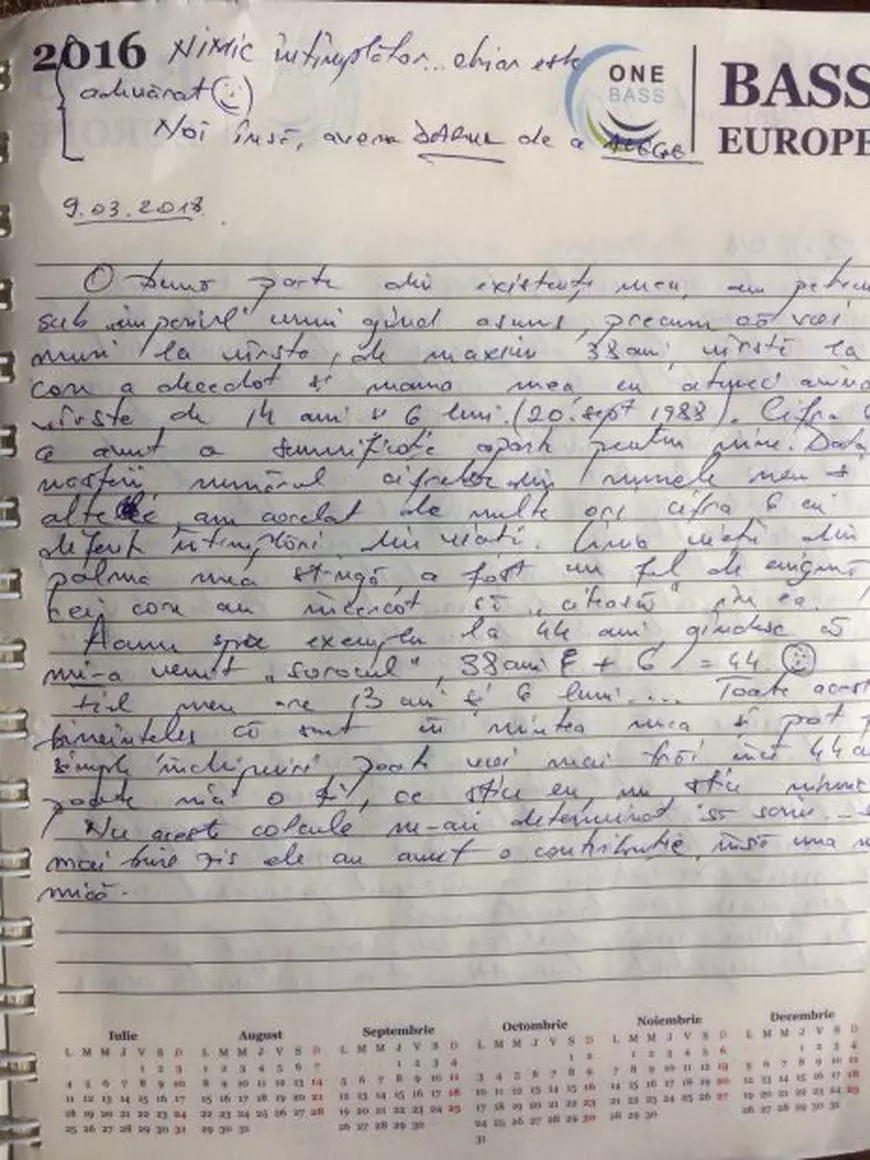 2016 Nimic întîmplător... chiar este
ONE
BASS
BASS
EUROPE
adevărat
Noi însă, avem DARUL de a ALEGE
9.03.2018
O bună parte din existența mea, am
sub "imperiul" unui gînd ascuns, precum că voi
muri la vîrsta, de maxim 38 ani vîrstă la
care a decedat și mama mea eu atunci
vîrsta de 14 ani și 6 luni. (20.sept 1988). Cifra 6
a avut o semnificație aparte pentru mine. Data
nașterii numărul cifrelor din numele meu și
altele, am corelat de multe ori cifra 6 cu
diferite întîmplări din viață. Linia vieții din
palma mea stîngă, a fost un fel de enigmă
cei care au încercat să "citească" din ea.
Acum spre exemplu la 44 ani gîndesc că
mi-a venit "sorocul", 38 ani + 6 = 44
meu are 13 ani și 6 luni.... Toate acest
bineînțeles că sunt în mintea mea și pot
simple închipuiri poate voi mai trăi încă 44 a
poate nici o zi, ce știu eu, nu știu nimic
Nu aceste calcule m-au determinat să scriu
mai bine zis ele au avut o contribuție, însă una
mică.
Iulie August Septembrie Octombrie Noiembrie Decembrie
L M M J V S D L M M J V S D L M M J V S D L M M J V S D L M M J V S D L M M J V S D
1 2 3 1 2 3 4 5 6 7 1 2 3 4 1 2 1 2 3 4 5 6 1 2 3 4
4 5 6 7 8 9 10 8 9 10 11 12 13 14 5 6 7 8 9 10 11 3 4 5 6 7 8 9 7 8 9 10 11 12 13 5 6 7 8 9 10 11
11 12 13 14 15 16 17 15 16 17 18 19 20 21 12 13 14 15 16 17 18 10 11 12 13 14 15 16 14 15 16 17 18 19 20 12 13 14 15 16 17 18
18 19 20 21 22 23 24 22 23 24 25 26 27 28 19 20 21 22 23 24 25 17 18 19 20 21 22 23 21 22 23 24 25 26 27 19 20 21 22 23 24 25
25 26 27 28 29 30 31 29 30 31 26 27 28 29 30 24 25 26 27 28 29 30 28 29 30 26 27 28 29 30 31
31